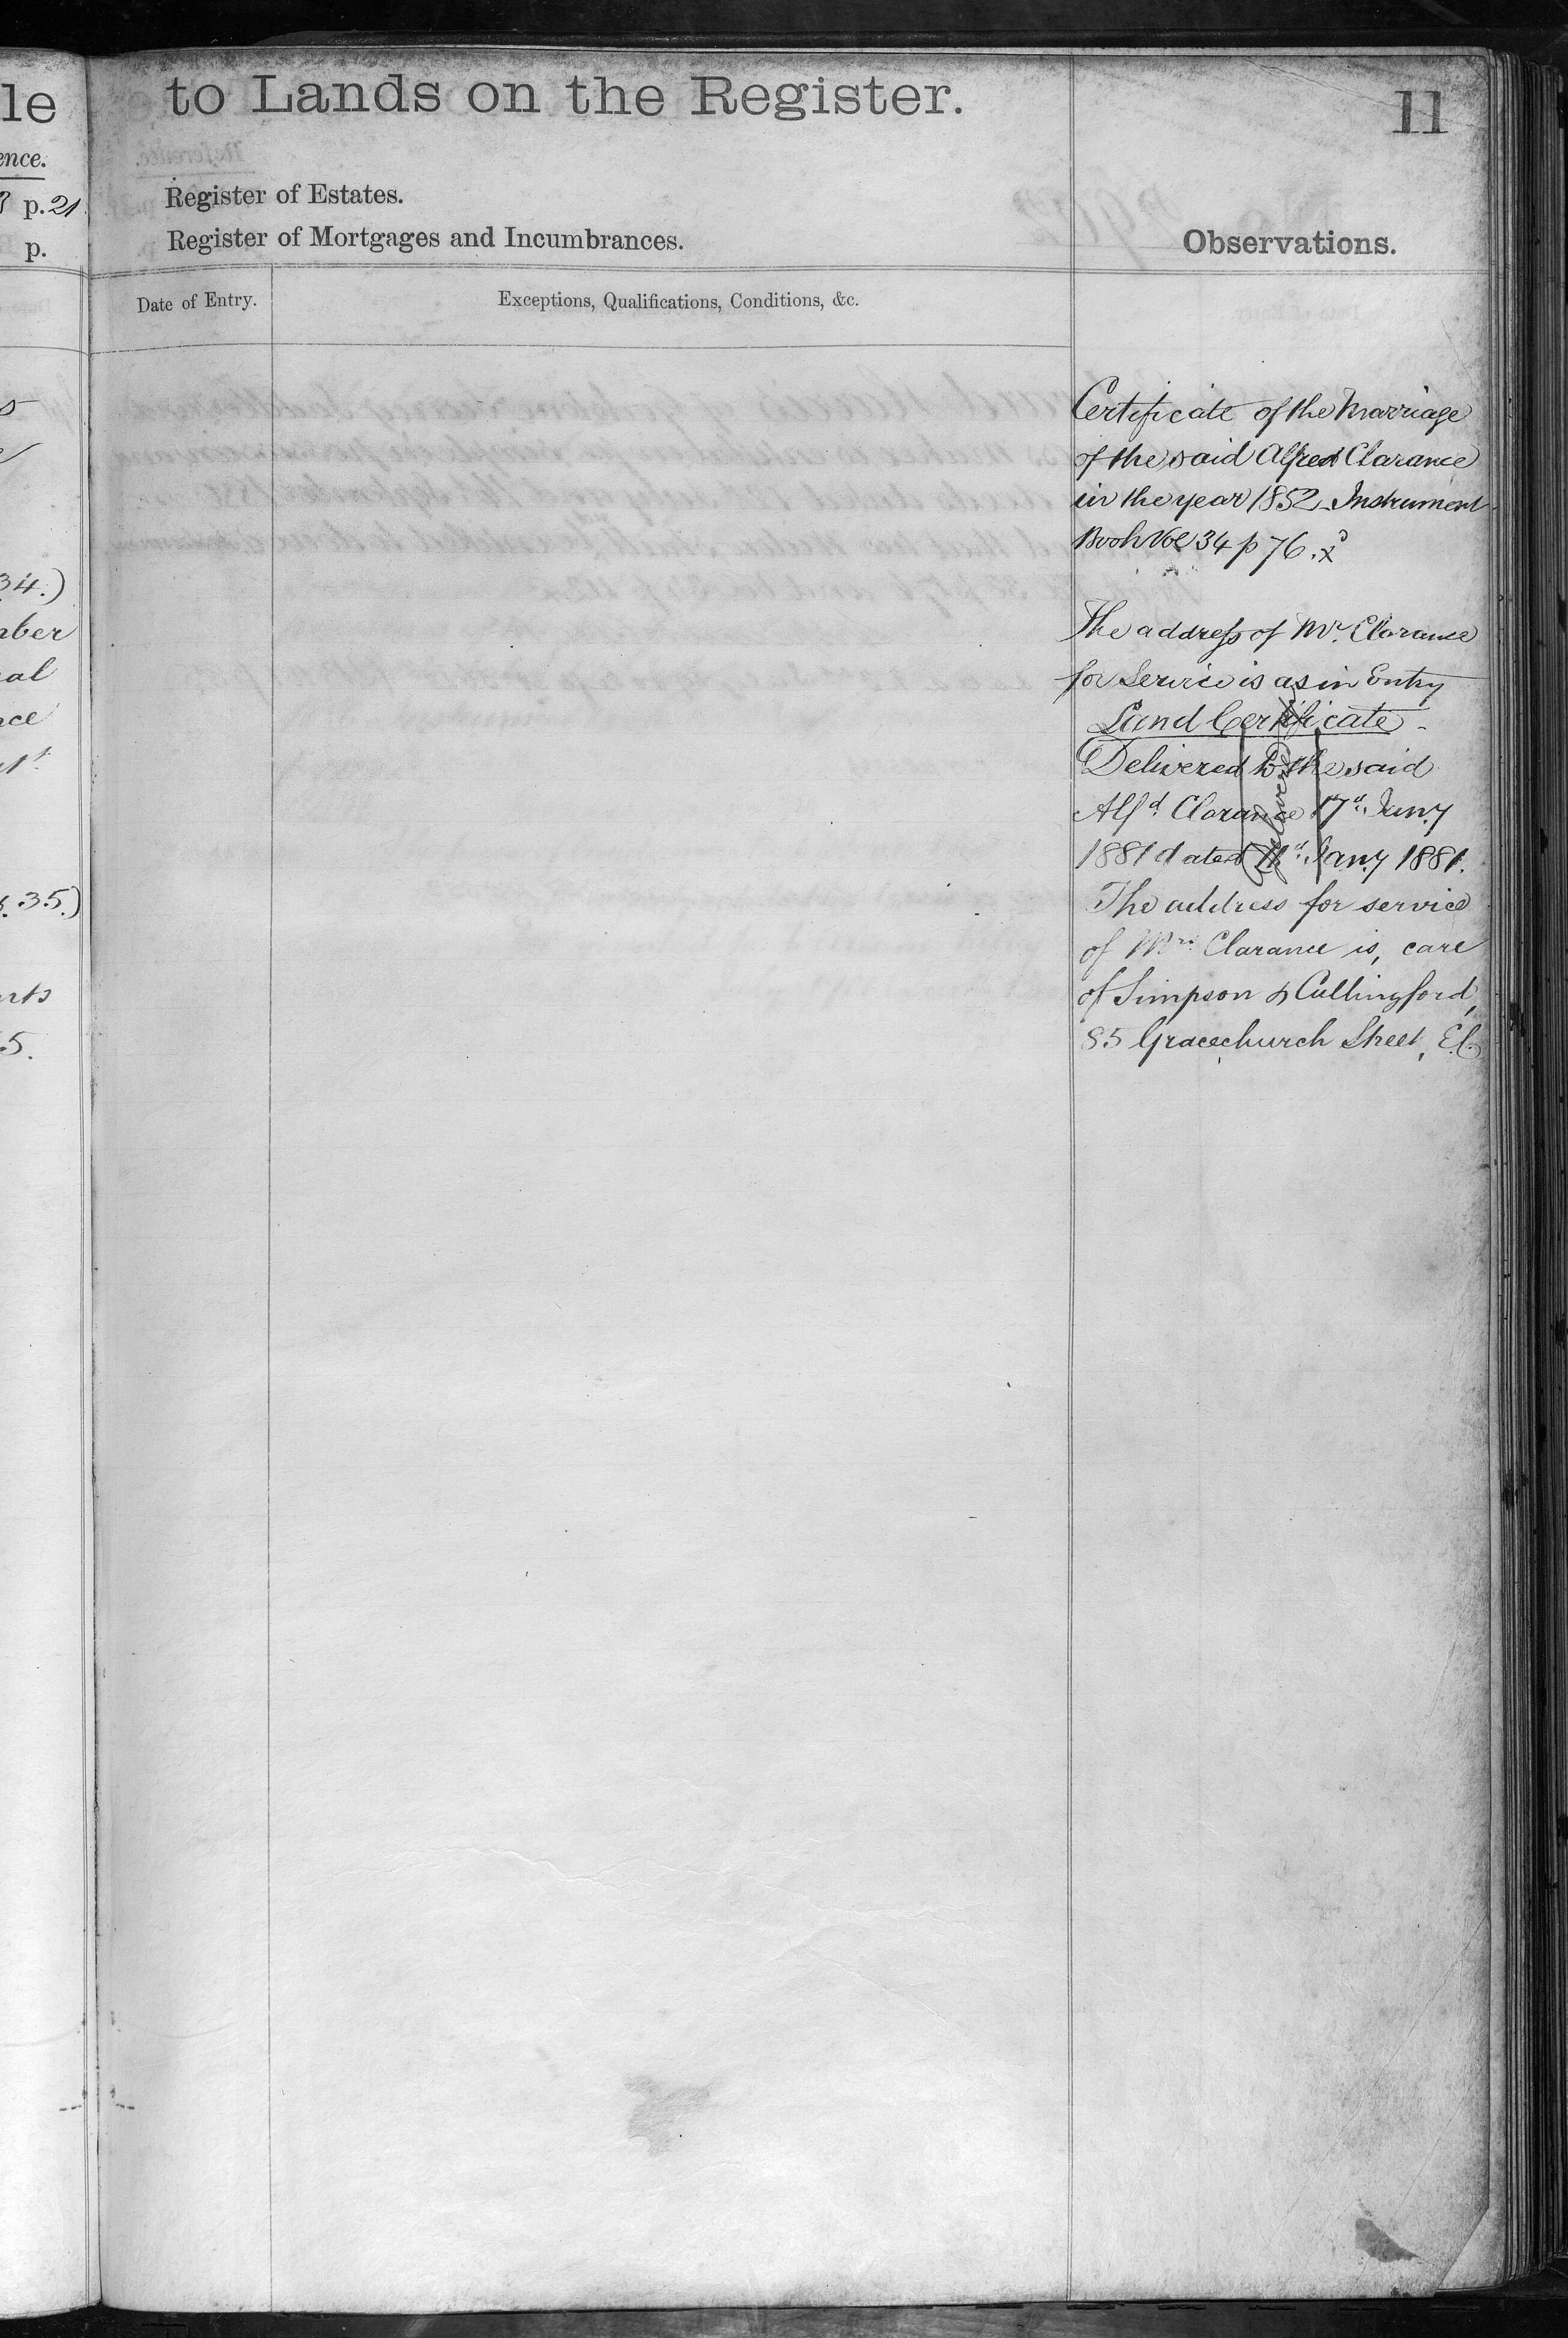 le
ence.
p. 21
p.
34.)
mber
al
nce
35.)
nts
5.
to Lands on the Register.
11
Register of Estates.
Register of Mortgages and Incumbrances.
Observations.
Date of Entry.
Exceptions, Qualifications, Conditions, &c.
Certificate of the Marriage
of the said Alfred Clarance
in the year 1852 Instrument
Book Vol 34 p 76.
The address of Mr. Clarance
for Service is as in Entry
Land Certificate
Delivered to the said
Alfd. Clarance 17d. Jany
1881 dated 11d. Jany 1881.
The address for service
of Mrs. Clarance is, care
of Simpson & Cullingford,
85 Gracechurch Street, E.C.